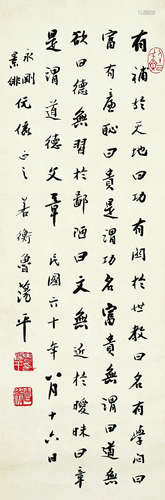 有補於天地曰功有關於世教曰名有學問曰
富有廉恥曰貴是謂功名富貴無謂曰道無
欲曰德無習於鄙陋曰文無近於曖昧曰章
是謂道德文章 民國六十年八月十六日
永剛
景緋
伉儷正之 若衡魯蕩平